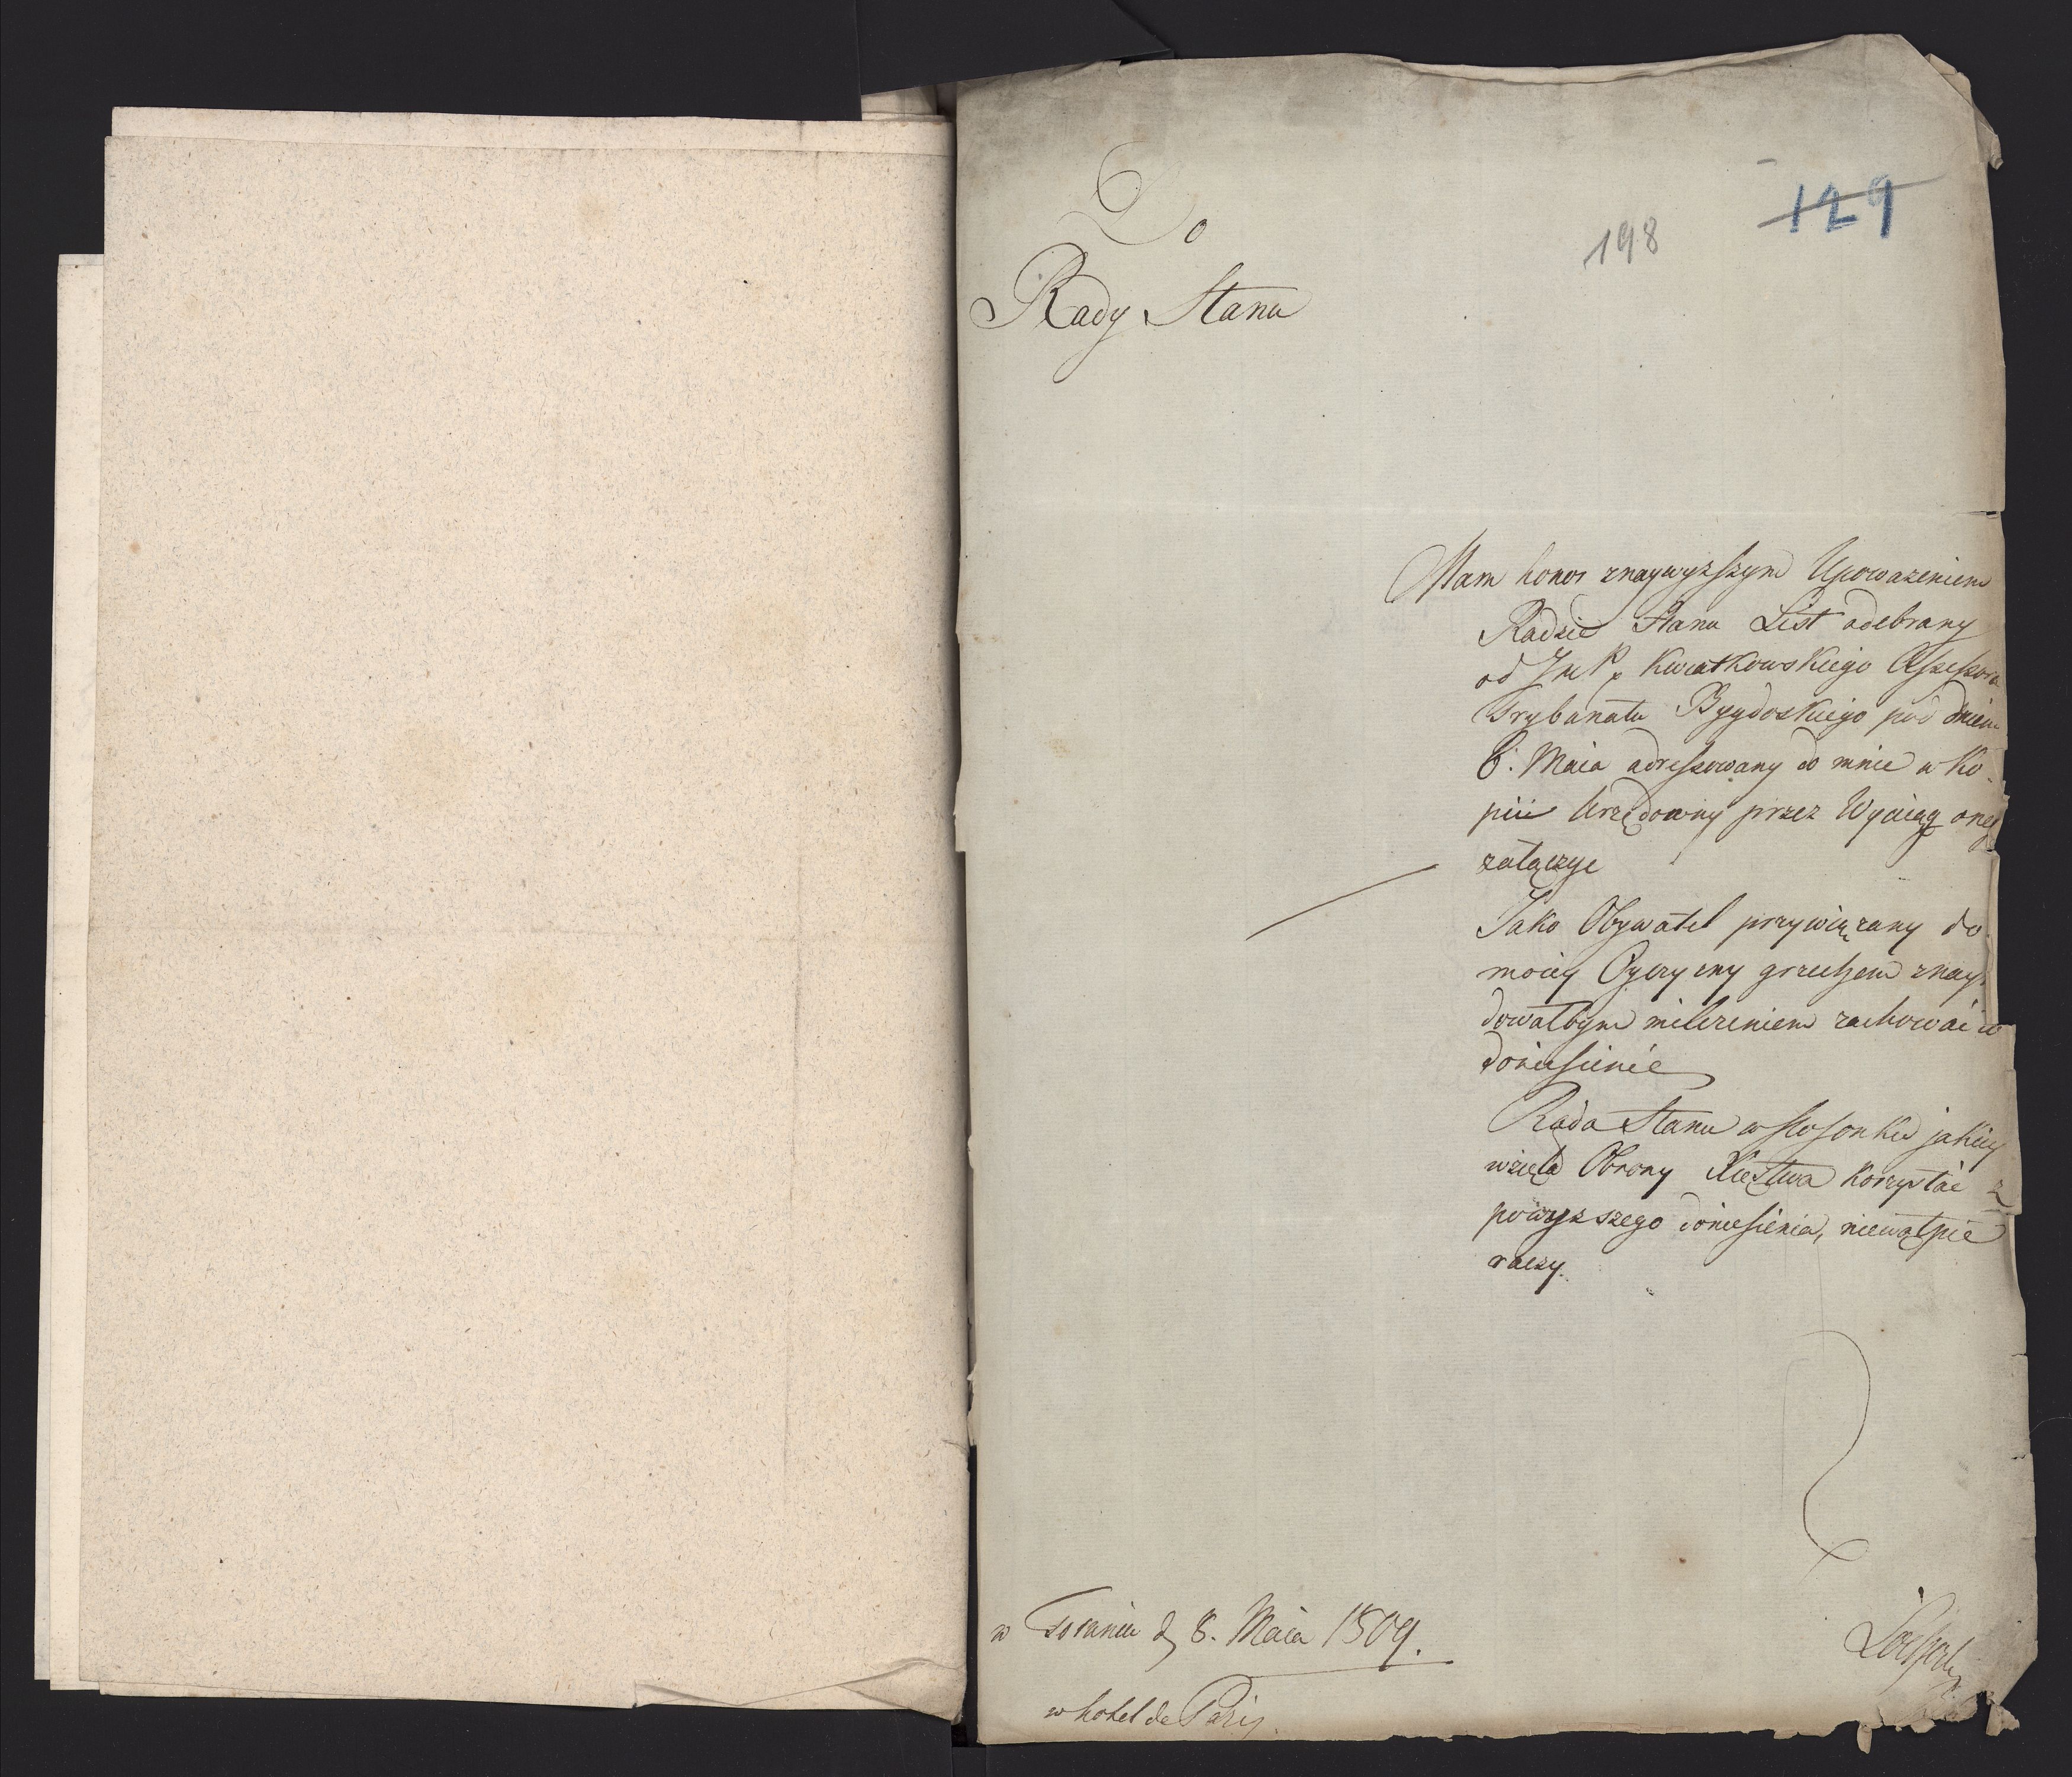 129
198
Do
Rady Stanu
Mam honor znaywyższym Upoważeniem
Radzie Stanu List odebrany
od JmP. Kwiatkowskiego Assessora
Trybunatu Bygdoskiego pod dniem
6. Maia adressowany do mnie w ko-
pii Urzędowny przez Wyciąg oney
załączyc
Jako Obywatel przywiązany do
moiey Oyczyzny grzechem znay-
dowałbym milczeniem zachowac w
doniesienie
Rada Stanu w stosonku jakiey
wzięła Obrony Xięstwa korzystać z
powyzszego doniesienia, niewątpie
raczy.
w Toruniu d. 8. Maia 1809.
w hotel de Paris.